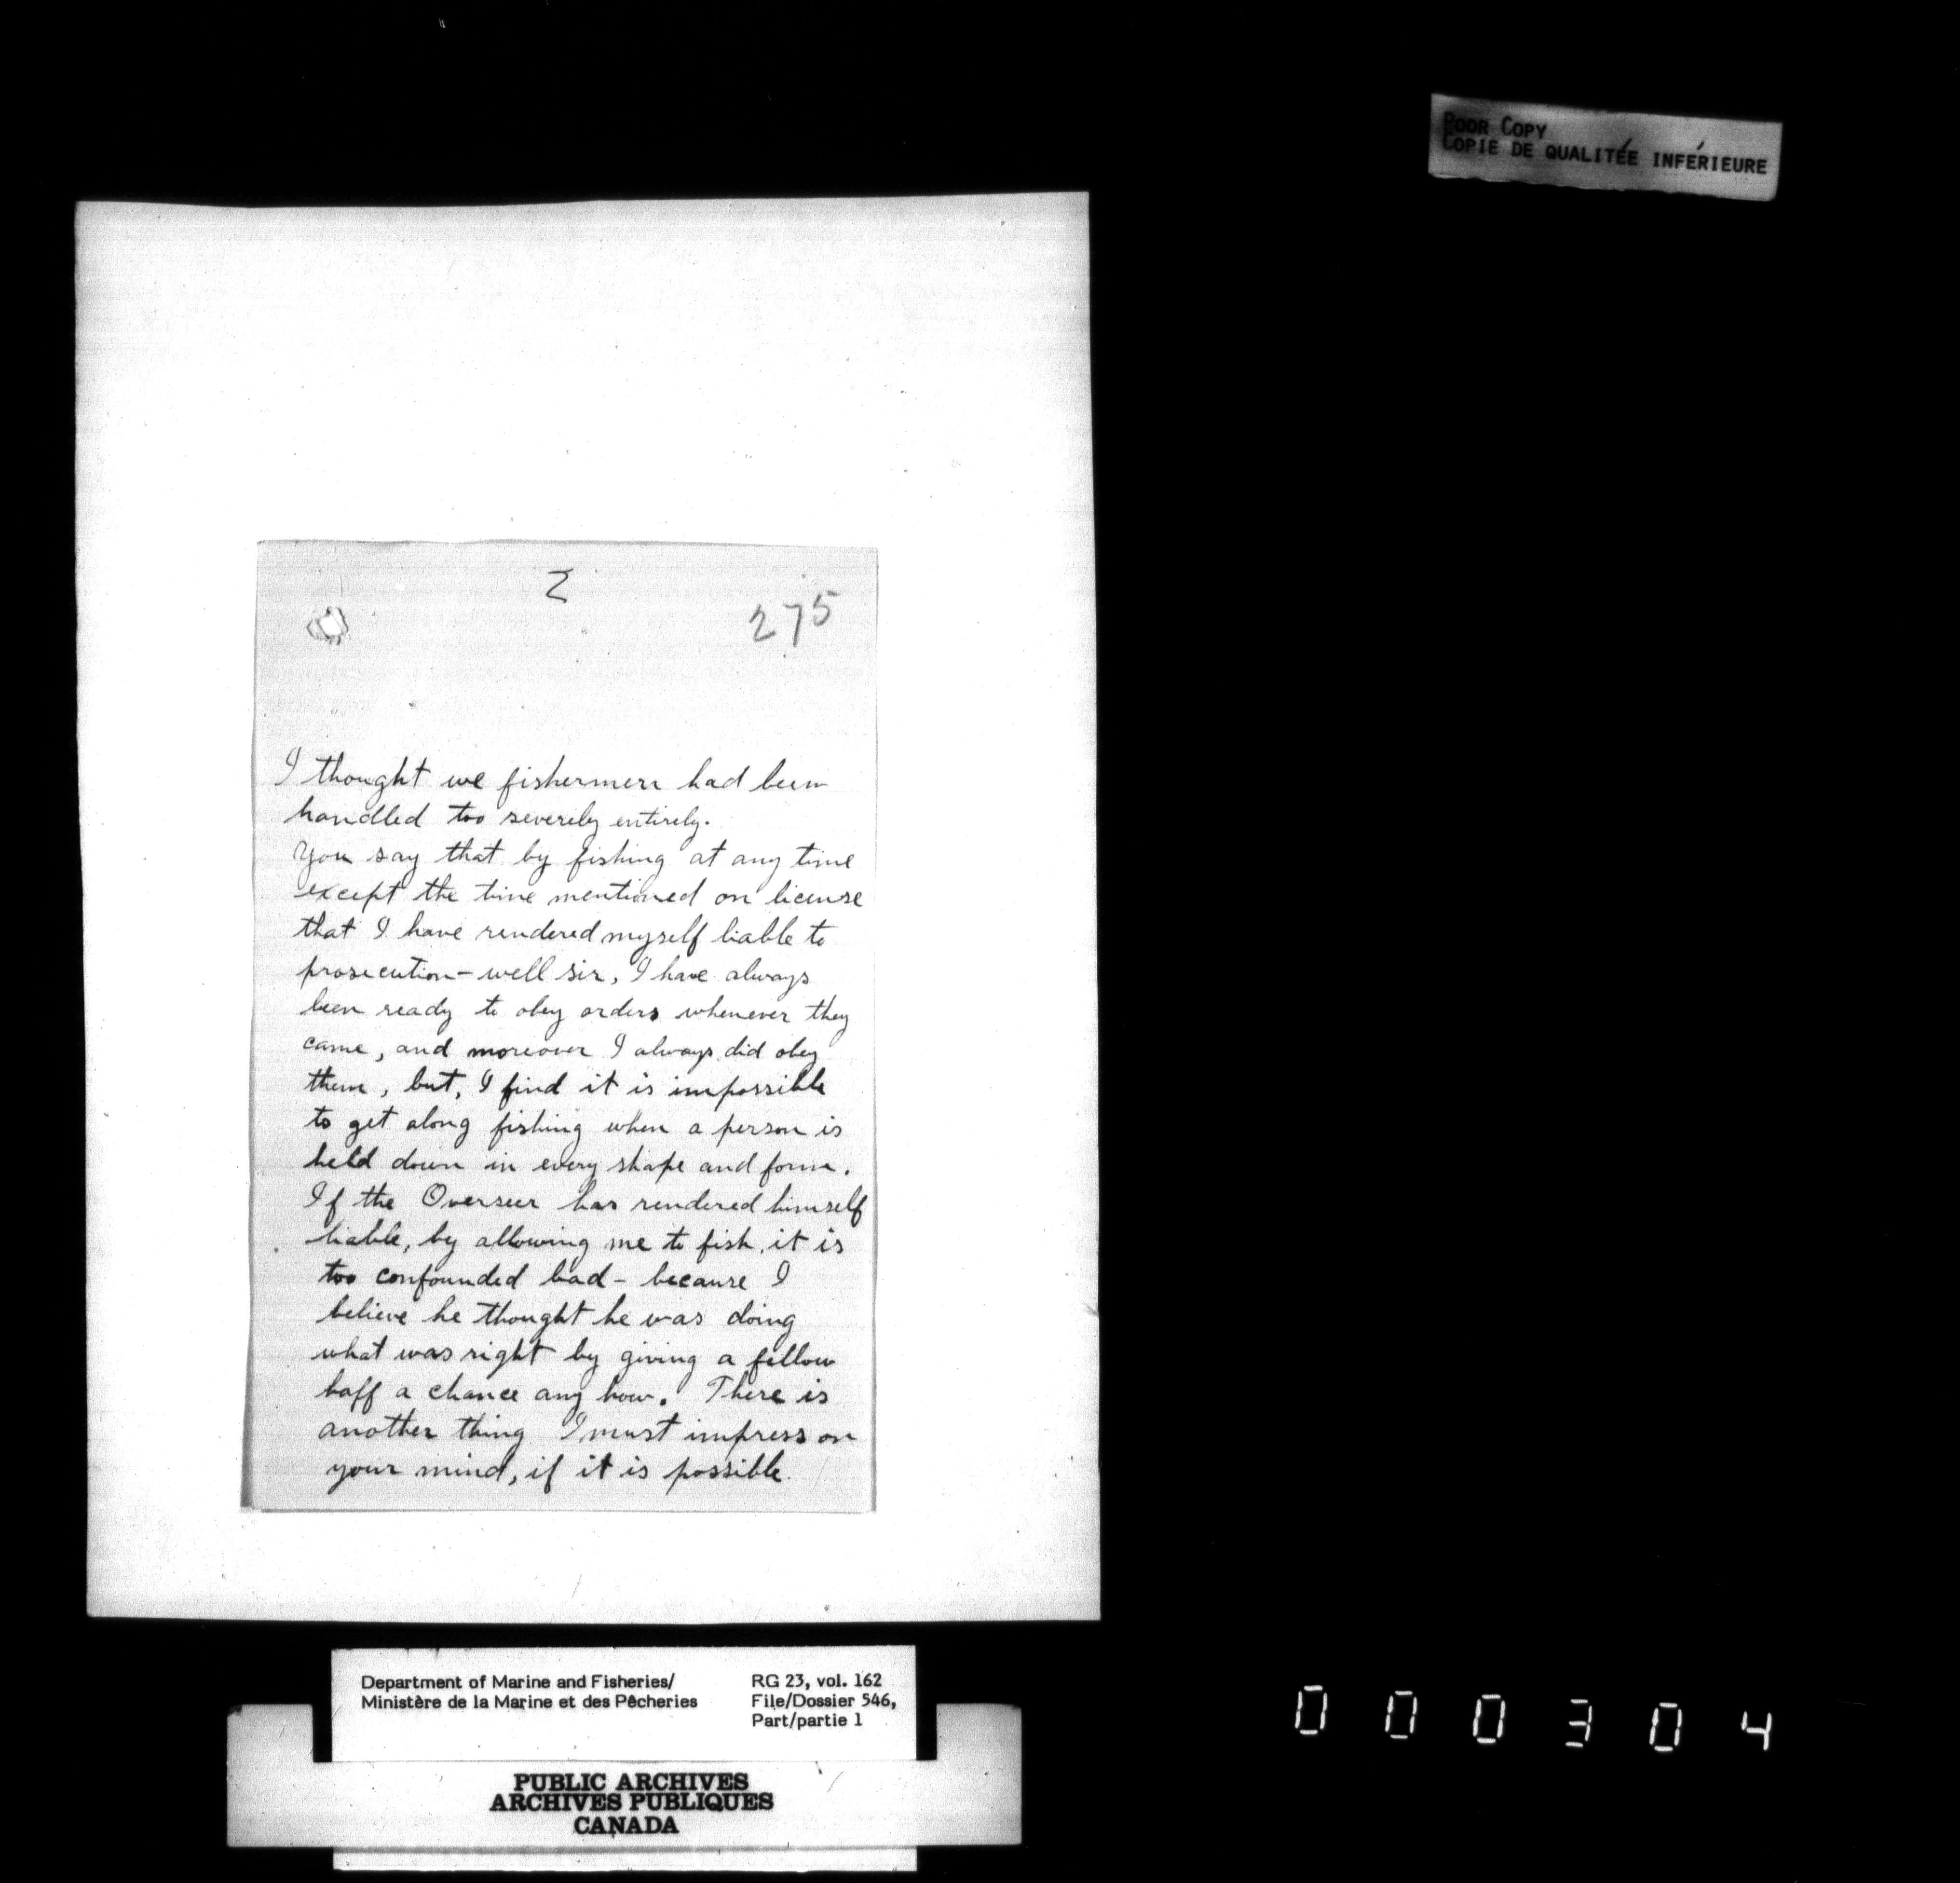 POOR COPY
COPIE DE QUALITÉE INFÉRIEURE
2
275
I thought we fishermen had been
handled too severely entirely.
You say that by fishing at any time
except the time mentioned on license
that I have rendered myself liable to
prosecution - well sir, I have always
been ready to obey orders whenever they
came, and moreover I always did obey
them, but, I find it is impossible
to get along fishing when a person is
held down in every shape and form.
If the Overseer has rendered himself
liable, by allowing me to fish, it is
too confounded bad - because I
believe he thought he was doing
what was right by giving a fellow
haff a chance any how. There is
another thing I must impress on
your mind, if it is possible.
Department of Marine and Fisheries/
Ministère de la Marine et des Pêcheries
RG 23, vol. 162
File/Dossier 546,
Part/partie 1
PUBLIC ARCHIVES
ARCHIVES PUBLIQUES
CANADA
000304